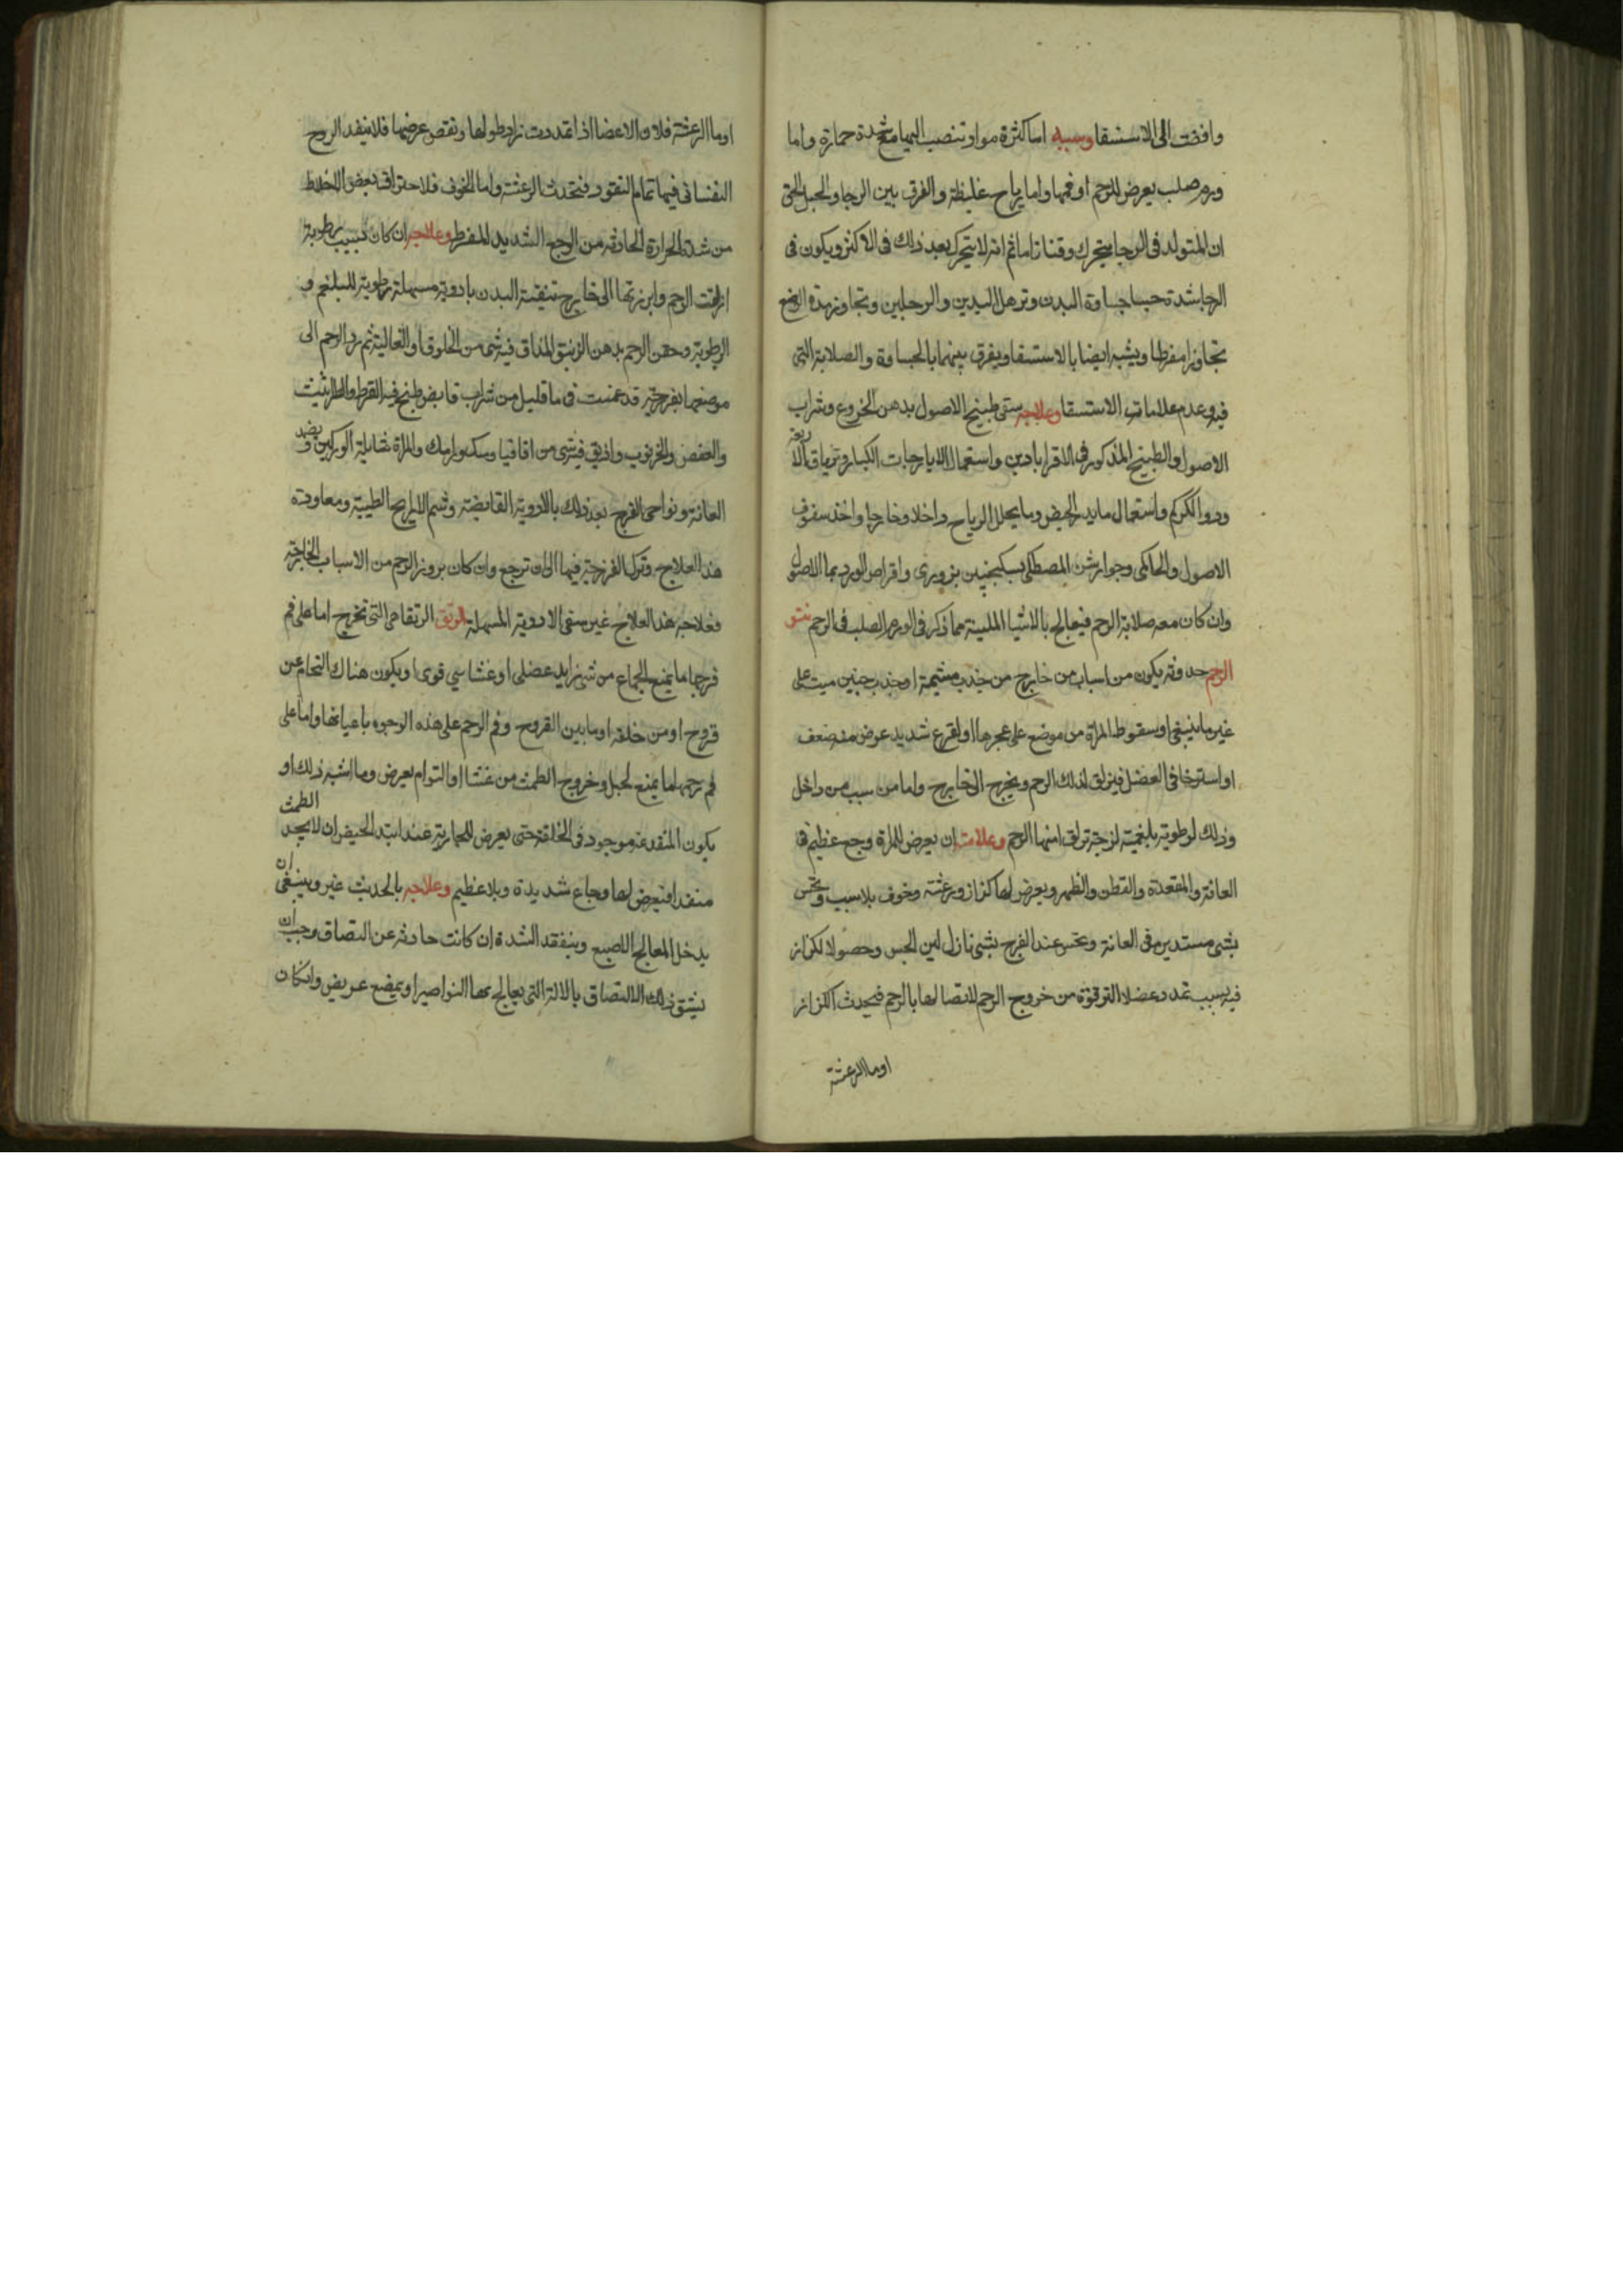 وافضت الى الاستسقا وسببه اما كثرة مواد تنصب اليها مع شدة حرارة واما
ورم صلب يعرض للرحم او فمها واما رياح غليظة والفرق بين الرجا والحبل الحق
ان المتولد فى الرجا يتحرك وقتا ما ثم انه لا يتحرك بعد ذلك فى الاكثر ويكون فى
الرجا شدة جسا جساوة البدن وترهل اليدين والرجلين وتجاوز مدة الوضع
تجاوزا مفرطا ويشبه ايضا بالاستسقا ويفرق بينهما بالجساوة والصلابة التى
فيه وعدم علامات الاستسقا وعلاجه سقى طبيخ الاصول بدهن الخروع وشراب
الاصول والطبيخ المذكور فى الاقرابادين واستعمال الايارجات الكبار وترياق الاربعة
ودوا الكركم واستعمال ما يدر الحيض وما يحلل الرياح داخلا وخارجا واخذ سفوف
الاصول والحاكمى وجوارشن المصطكى بسكنجبين بزورى واقراص الورد بما الاصول
وان كان معه صلابة الرحم فيعالج بالاشيا الملينة مما ذكر فى الورم الصلب فى الرحم نتو
الرحم حدوثه يكون من اسباب من خارج من جذب مشيمة او جذب جنين ميت على
غير ما ينبغى او سقوط المراة من موضع على عجزها او لفزع شديد عرض منه ضعف
او استرخا فى العضل فينزلق لذلك الرحم ويخرج الى خارج واما من سبب من داخل
وذلك لرطوبة بلغمية لزجة تزلق منها الرحم وعلامته ان يعرض للمراة وجع عظيم فى
العانة والمقعدة والقطن والظهر ويعرض لها كزاز ورعشة وخوف بلا سبب وتحس
بشى مستدير فى العانة وتحس عند الفرج بشى نازل لين الجس وحصول الكزاز
فيه بسبب تمدد عضلا الترقوة من خروج الرحم لاتصالها بالرحم فيحدث الكزاز
اوما الرعشة
اوما الرعشة فلان الاعضا اذا تمددت زاد طولها ونقص عرضها فلا ينفد الروح
النفسانى فيها تمام النفود فتحدث الرعشة واما الخوف فلاحتراق بعض الاخلاط
من شدة الحرارة الحادثة من الوجع الشديد المفرط وعلاجه ان كان بسبب رطوبة
ازلقت الرحم وابرزتها الى خارج تنقية البدن بادوية مسهلة رطوبة للبلغم و
الرطوبة وحقن الرحم بدهن الزنبق المذاف فيه شى من الخلوق او الغالية ثم رد الرحم الى
موضعها بفرزجة قد غمست فى ما قليل من شراب قابض طبخ فيه القرط والطراثيث
والعفص والخرنوب واذيف فيه شى من اقاقيا وسك ورامك والمراة شايلة الوركين ويضمد
العانة ونواحى الفرج بعد ذلك بالادوية القابضة وشم الارايح الطيبة ومعاودة
هذا العلاج وترك الفرزجة فيها الى ان ترجع وان كان بروز الرحم من الاسباب الخارجة
فعلاجه هذا العلاج غير سقى الادوية المسهلة الرتق الرتقا هى التى تخرج اما على فم
فرجها ما يمنع الجماع من شى زايد عضلى او غشايى قوى او يكون هناك التحام عن
قروح او من خلقه او ما بين القروح وفم الرحم على هذه الوجوه باعيانها واما على
فم رحمها ما يمنع لحبل وخروج الطمث من غشا او التوام يعرض وما اشبه ذلك او
يكون المنفد غير موجود فى الخلقة حتى يعرض للجارية عند ابتد الحيض ان لا يجد الطمث
منفدا فيعرض لها اوجاع شديدة وبلا عظيم وعلاجه بالحديث غير وينبغى ان
يدخل المعالج الاصبع ويتفقد الشدة ان كانت حادثة عن التصاق وجب ان
يشق ذلك الالتصاق بالالة التى يعالج بها النواصير او بمبضع عريض وان كان